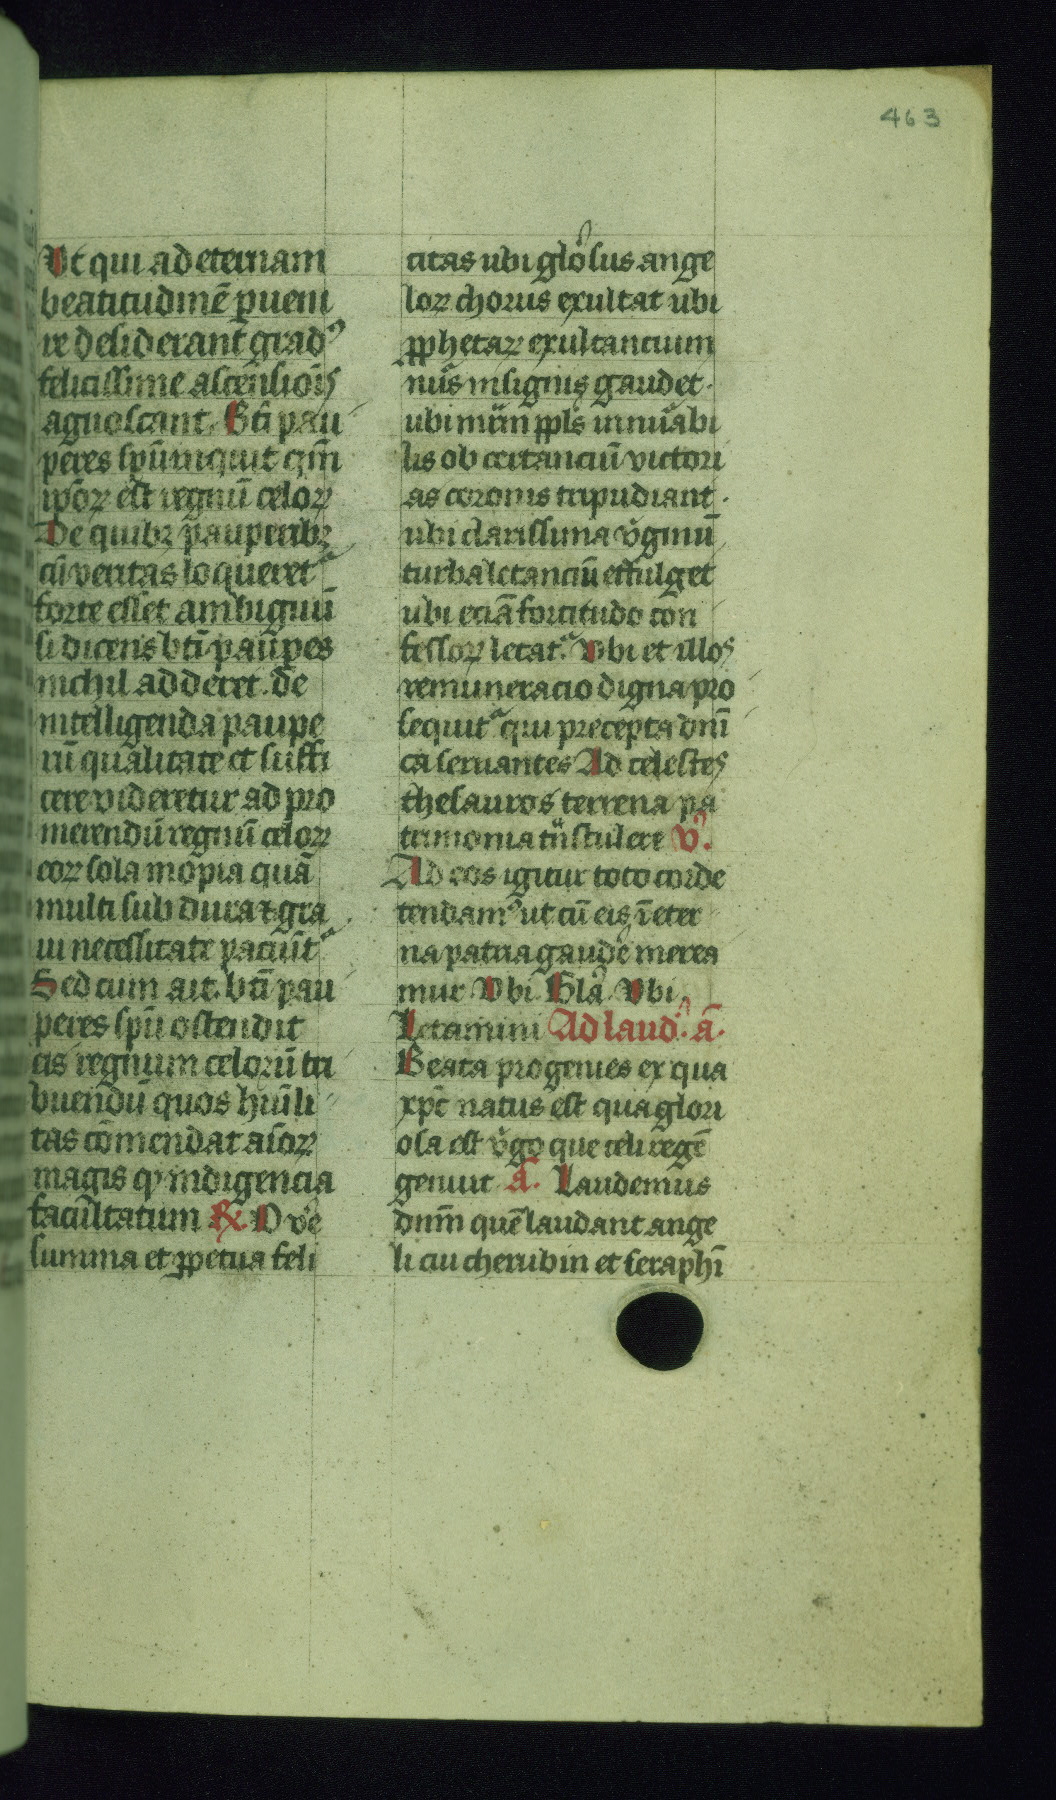 463
Ut qui ad eternam
beatitudinē pueni
re desiderant gradꝰ
felicissime ascensiōis
agnoscant. Bti pau
peres spū inquit qm̄
ip̄oꝝ est regnū celoꝝ
De quibꝫ pauperibꝫ
cū veritas loqueret᷑
forte esset ambiguū
si dicens bti paup̄es
nichil adderet. de
intelligenda paupe
rū qualitate et suffi
cere videretur ad pro
merendū regnū celoꝝ
eoꝝ sola inopia quā
multi sub dura ⁊ gra
ui necessitate paciūt᷑
Sed cum ait. bti pau
peres spū ostendit
eis regnum celorū tri
buendū quos humili
tas cōmendat aīoꝝ
magis qͣ indigencia
facultatum ℟. O ve
summa et ꝑpetua feli
citas ubi glōsus ange
loꝝ chorus exultat ubi
ꝓphetaꝝ exultancium
nūs insignis gaudet.
ubi mūm ppls innuābi
lis ob certanciū victori
as coronis tripudiant.
ubi clarissima v̄ginū
turba letanciū effulget
ubi eciā fortitudo con
fessoꝝ letat᷑. Ubi et illos
remuneracio digna pro
sequit᷑ qui precepta dnī
ca seruantes Ad celestes
thesauros terrena pa
trimonia tūstulere ℣.
Ad eos igitur toto corde
tendamꝰ ut cū eis ī eter
na patria gaudē merea
mur Ubi Glā Ubi
Letamini Ad laud̄. ā.
Beata progenies ex qua
xpc̄ natus est qua glori
osa est v̄go que celi regē
genuit ā. Laudemus
dnm̄ quē laudant ange
li cui cherubin et seraphī